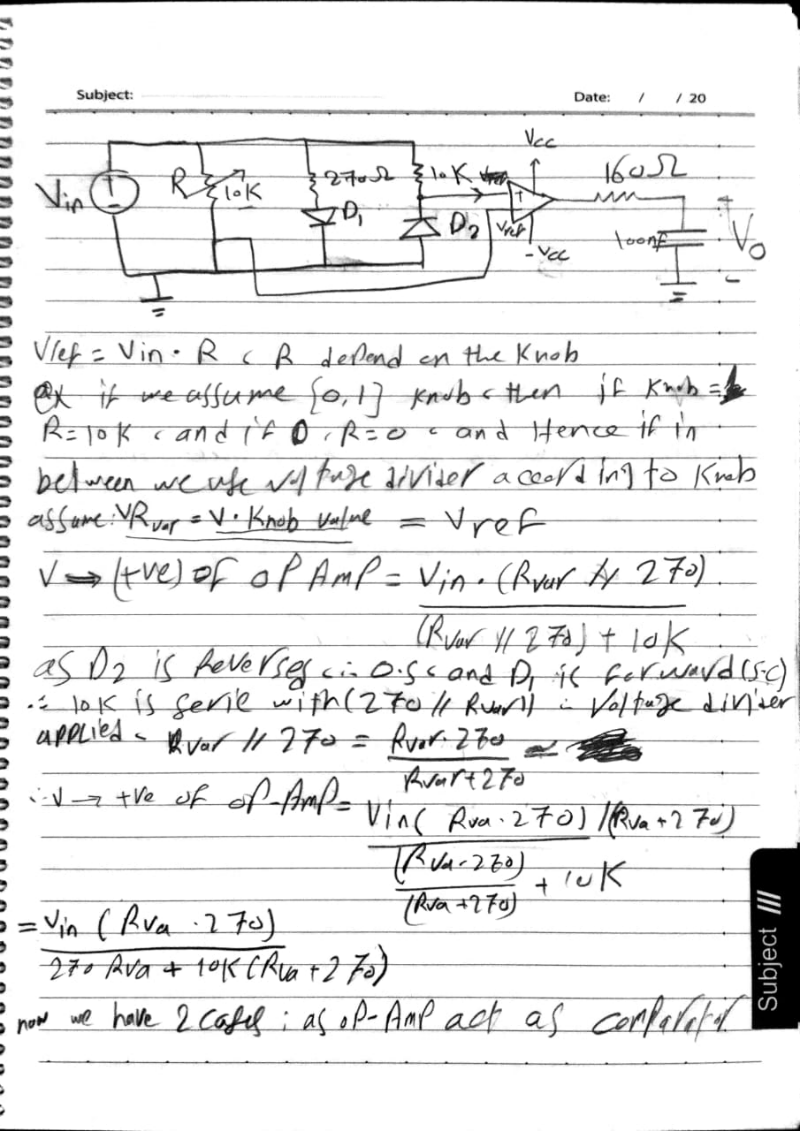 Subject:
Date: / / 20
Vcc
160Ω
Vin R 10K 270Ω 10K
D1 D2 Vref 100nF Vo
-Vcc
Vref = Vin · R , R depend on the Knob
ex if we assume {0,1] knob , then if Knob = 1
R=10K , and if 0 , R=0 , and Hence if in
between we use voltage divider according to Knob
assume: VRvar = V · Knob value = Vref
V ⇒ (+ve) of OP AMP = Vin · (Rvar // 270)
(Rvar // 270) + 10K
as D2 is Reverse , ∴ O.S , and D1 is forward (S.C)
∴ 10K is serie with (270 // Rvar) ∴ Voltage divider
applied , Rvar // 270 = Rvar·270
Rvar+270
∴ V → +ve of OP-AMP = Vin ( Rva · 270) / (Rva + 270)
(Rva·270)
(Rva +270) + 10K
= Vin ( Rva · 270)
270 Rva + 10K (Rva + 270)
now we have 2 cases : as OP-AMP act as comparator
Subject